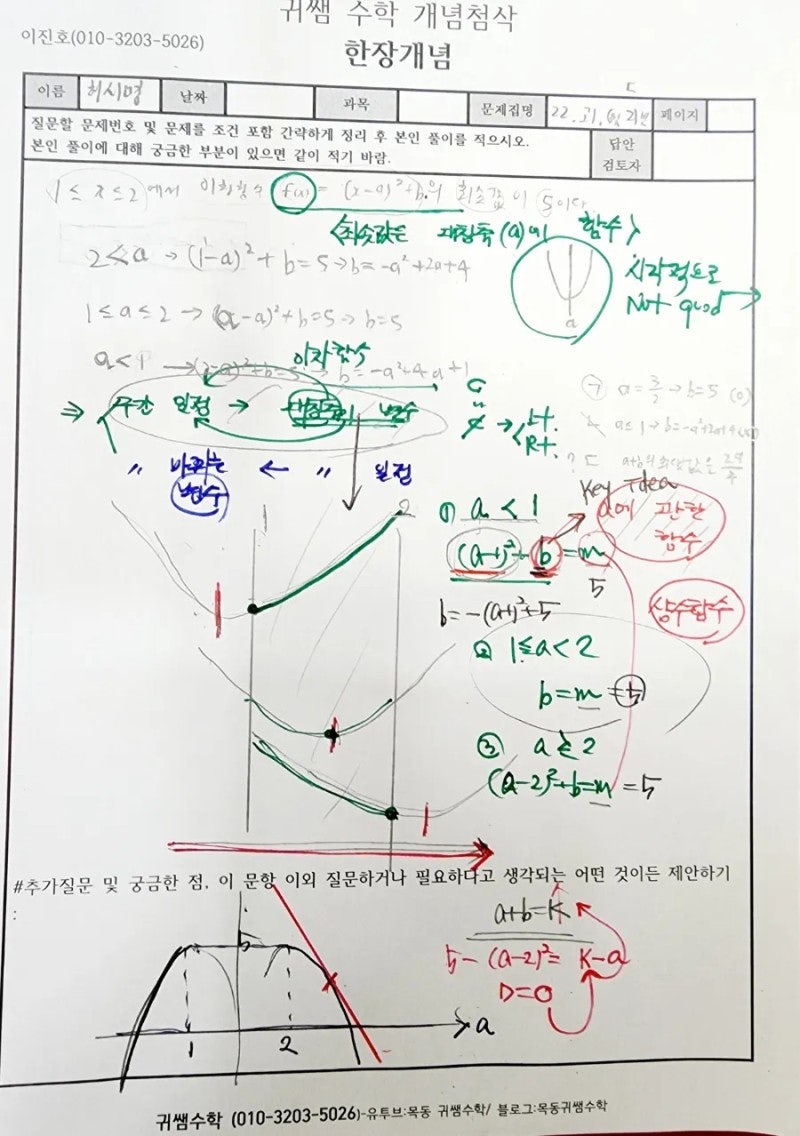 귀쌤 수학 개념첨삭
이진호(010-3203-5026)
한장개념
이름 허시명 날짜 과목 문제집명 22. 고1, 페이지
질문할 문제번호 및 문제를 조건 포함 간략하게 정리 후 본인 풀이를 적으시오.
본인 풀이에 대해 궁금한 부분이 있으면 같이 적기 바람.
답안
검토자
1 ≤ x ≤ 2 에서 이차함수 f(x) = (x-a)²+b의 최솟값이 5이다
<최솟값은 대칭축(a)의 함수>
2<a → (1-a)²+b=5→b=-a²+2a+4
a
시각적으로
Not good →
1≤a≤2 → (a-a)²+b=5→b=5
a<1 → (2-a)²+b=5 → b=-a²+4a+1
이차함수
⇒ 구간 일정 → 대칭축이 변수
G
→ < L+.
R+.
㉠ a= → b=5 (0)
a≤1→b=-a²+2a+4
? ㄷ a+b의 최댓값은
〃 바뀌는 ← 〃 일정
변수
Key Idea
1
2
① a < 1
(a-1)²+b=m
5
a에 관한
함수
b=-(a-1)²+5
상수함수
② 1≤a<2
b=m=5
③ a≥2
(a-2)²+b=m=5
#추가질문 및 궁금한 점, 이 문항 이외 질문하거나 필요하다고 생각되는 어떤 것이든 제안하기
:
5
1
2
a
a+b=K
5-(a-2)²=K-a
D=0
귀쌤수학 (010-3203-5026)-유투브:목동 귀쌤수학/ 블로그:목동귀쌤수학